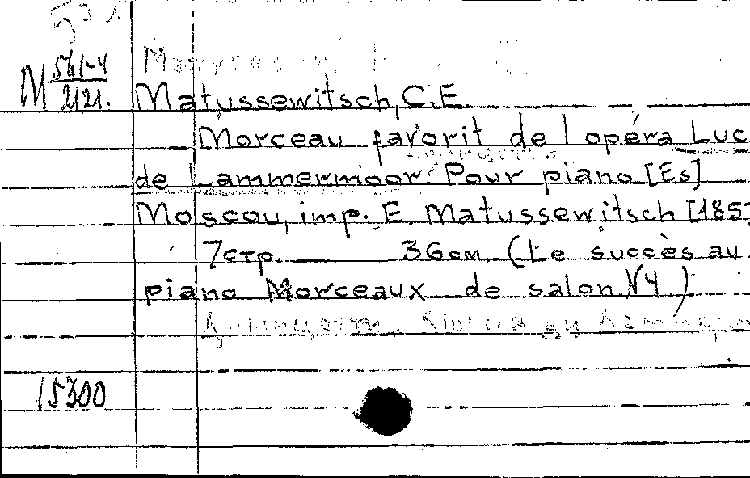 M 561-4
2121.
Matussewitsch, C.E.
Morceau favorit de l'opéra Luc
de Lammermoor Pour piano [Es]
Moscou, imp. E. Matussewitsch [185
7 стр. 36 см. (Le succès au
piano Morceaux de salon, N4)
15300